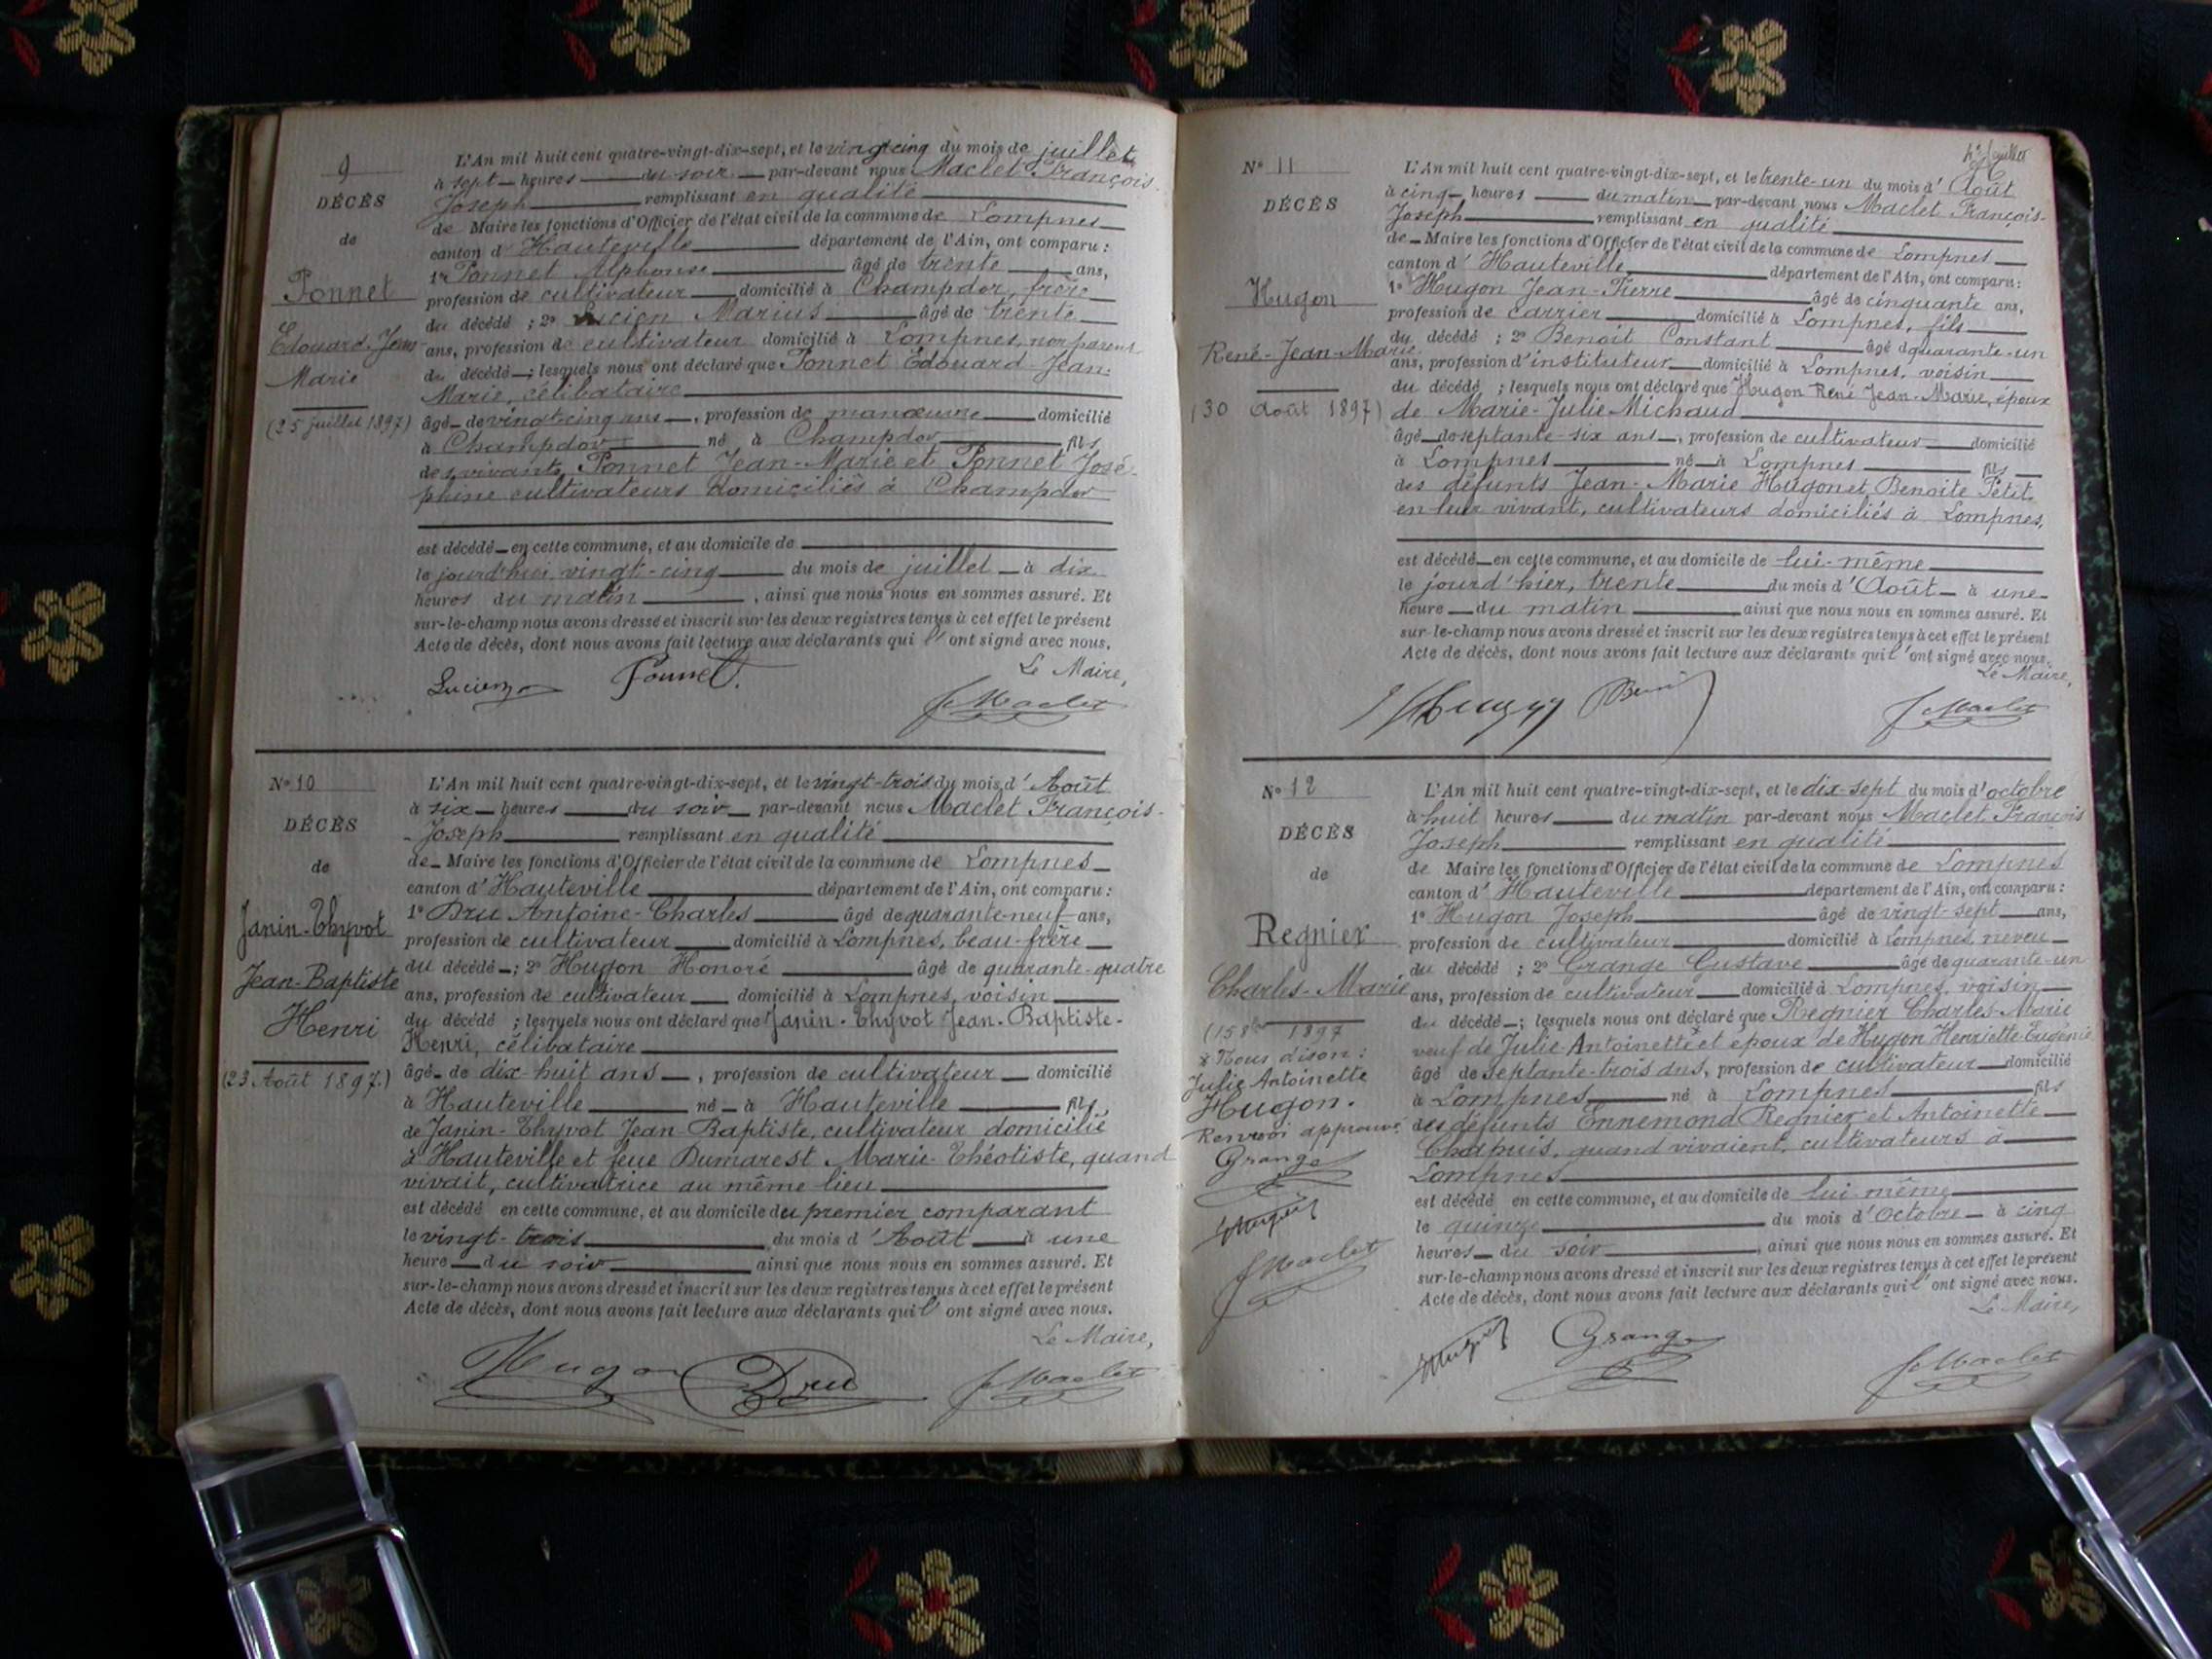 9
DÉCÈS
de
Ponnet
Edouard-Jean
Marie
(25 juillet 1897)
L'An mil huit cent quatre-vingt-dix-sept, et le vingt cinq du mois de juillet
à sept heures du soir par-devant nous Maclet François
Joseph remplissant en qualité
de Maire les fonctions d'Officier de l'état civil de la commune de Lompnes
canton d'Hauteville département de l'Ain, ont comparu :
1º Ponnet Alphonse âgé de trente ans,
profession de cultivateur domicilié à Champdor, frère
du décédé ; 2º Lucien Marius âgé de trente
ans, profession de cultivateur domicilié à Lompnes, non parent
du décédé ; lesquels nous ont déclaré que Ponnet Edouard-Jean-
Marie, célibataire
âgé de vingt cinq ans, profession de manœuvre domicilié
à Champdor né à Champdor fils
de vivants Ponnet Jean-Marie et Ponnet José-
phine cultivateurs domiciliés à Champdor
est décédé en cette commune, et au domicile de
le jourd'hui vingt-cinq du mois de juillet à dix
heures du matin, ainsi que nous nous en sommes assuré. Et
sur-le-champ nous avons dressé et inscrit sur les deux registres tenus à cet effet le présent
Acte de décès, dont nous avons fait lecture aux déclarants qui l'ont signé avec nous.
Le Maire,
Lucien Ponnet
f Maclet
Nº 10
DÉCÈS
de
Janin-Thyvot
Jean-Baptiste
Henri
(23 Août 1897.)
L'An mil huit cent quatre-vingt-dix-sept, et le vingt-trois du mois d'Août
à six heures du soir par-devant nous Maclet François-
Joseph remplissant en qualité
de Maire les fonctions d'Officier de l'état civil de la commune de Lompnes
canton d'Hauteville département de l'Ain, ont comparu :
1º Dru Antoine-Charles âgé de quarante-neuf ans,
profession de cultivateur domicilié à Lompnes, beau-frère
du décédé ; 2º Hugon Honoré âgé de quarante-quatre
ans, profession de cultivateur domicilié à Lompnes, voisin
du décédé ; lesquels nous ont déclaré que Janin-Thyvot Jean-Baptiste-
Henri, célibataire
âgé de dix-huit ans, profession de cultivateur domicilié
à Hauteville né à Hauteville fils
de Janin-Thyvot Jean-Baptiste, cultivateur domicilié
à Hauteville et feue Dumarest Marie-Théotiste, quand
vivait, cultivatrice au même lieu
est décédé en cette commune, et au domicile du premier comparant
le vingt-trois du mois d'Août à une
heure du soir ainsi que nous nous en sommes assuré. Et
sur-le-champ nous avons dressé et inscrit sur les deux registres tenus à cet effet le présent
Acte de décès, dont nous avons fait lecture aux déclarants qui l'ont signé avec nous.
Le Maire,
Hugon Dru f Maclet
Nº 11
DÉCÈS
Hugon
René-Jean-Marie
(30 Août 1897)
L'An mil huit cent quatre-vingt-dix-sept, et le trente-un du mois d'Août
à cinq heures du matin par-devant nous Maclet François-
Joseph remplissant en qualité
de Maire les fonctions d'Officier de l'état civil de la commune de Lompnes
canton d'Hauteville département de l'Ain, ont comparu :
1º Hugon Jean-Pierre âgé de cinquante ans,
profession de carrier domicilié à Lompnes, fils
du décédé ; 2º Benoit Constant âgé d quarante-un
ans, profession d'instituteur domicilié à Lompnes, voisin
du décédé ; lesquels nous ont déclaré que Hugon René Jean-Marie, époux
de Marie-Julie Michaud
âgé de septante-six ans, profession de cultivateur domicilié
à Lompnes né à Lompnes fils
des défunts Jean-Marie Hugon et Benoite Petit
en leur vivant, cultivateurs domiciliés à Lompnes.
est décédé en cette commune, et au domicile de lui-même
le jourd'hier, trente du mois d'Août à une
heure du matin ainsi que nous nous en sommes assuré. Et
sur-le-champ nous avons dressé et inscrit sur les deux registres tenus à cet effet le présent
Acte de décès, dont nous avons fait lecture aux déclarants qui l'ont signé avec nous.
Le Maire,
f Maclet
Nº 12
DÉCÈS
de
Regnier
Charles-Marie
(15 8bre 1897
x Nous dison :
Julie Antoinette
Hugon.
Renvoi approuvé
Grange
f Maclet
L'An mil huit cent quatre-vingt-dix-sept, et le dix-sept du mois d'octobre
à huit heures du matin par-devant nous Maclet François
Joseph remplissant en qualité
de Maire les fonctions d'Officier de l'état civil de la commune de Lompnes
canton d'Hauteville département de l'Ain, ont comparu :
1º Hugon Joseph âgé de vingt-sept ans,
profession de cultivateur domicilié à Lompnes neveu
du décédé ; 2º Grange Gustave âgé de quarante-un
ans, profession de cultivateur domicilié à Lompnes, voisin
du décédé ; lesquels nous ont déclaré que Regnier Charles-Marie
veuf de Julie-Antoinette x et époux de Hugon Henriette-Eugénie
âgé de septante-trois ans, profession de cultivateur domicilié
à Lompnes né à Lompnes fils
des défunts Ennemond Regnier et Antoinette
Chapuis, quand vivaient, cultivateurs à
Lompnes
est décédé en cette commune, et au domicile de lui-même
le quinze du mois d'Octobre à cinq
heures du soir, ainsi que nous nous en sommes assuré. Et
sur-le-champ nous avons dressé et inscrit sur les deux registres tenus à cet effet le présent
Acte de décès, dont nous avons fait lecture aux déclarants qui l'ont signé avec nous.
Le Maire,
Grange
f Maclet